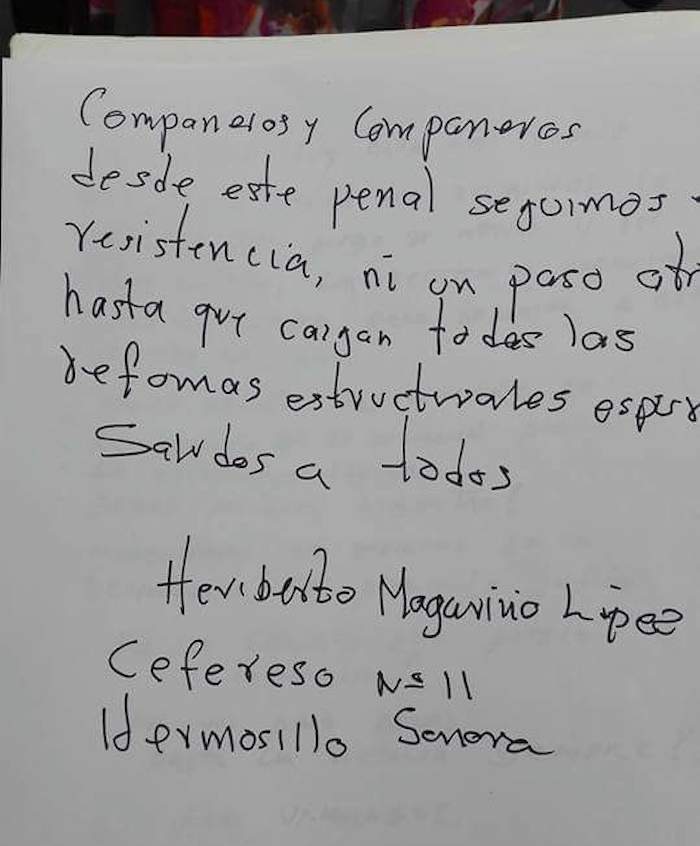 Companeros y Companeros
desde este penal seguimos
resistencia, ni un paso atr
hasta que caigan todas las
refomas estructurales esper
Saludos a todos
Heriberto Magariño López
Cefereso Nº 11
Hermosillo Sonora